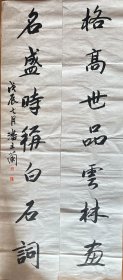 格高世品雲林画
名盛時稱白石詞
戊辰七月